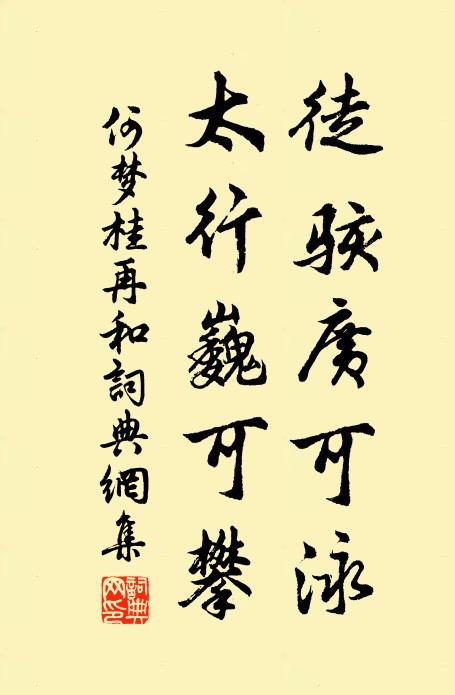 徒骇廣可泳
太行巍可攀
何梦桂再和詞典網集
詞典
网印